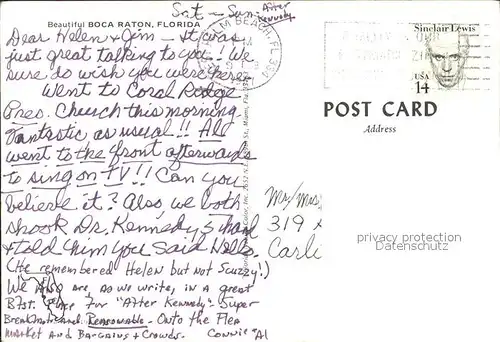 Sat - Sun. After Kennedy
Beautiful BOCA RATON, FLORIDA
Dear Helen & Jim - It was
just great talking to you!! We
sure do wish you were here.
Went to Coral Ridge
Pres. Church this morning.
Fantastic as usual!! Al
went to the front afterwards
to sing on TV!! Can you
believe it? Also, we both
shook Dr. Kennedy's hand
& told him you said Hello.
(He remembered Helen but not Scuzzy!)
We are, as we write, in a great
B'fst. Place for "After Kennedy" - Super
Breakfast and Reasonable - Onto the Flea
Market and Bargains & Crowds. Connie Al
M BEACH, FL 334
Sinclair Lewis
USA
14
POST CARD
Address
Mr/Mrs
319
Carli
privacy protection
Datenschutz